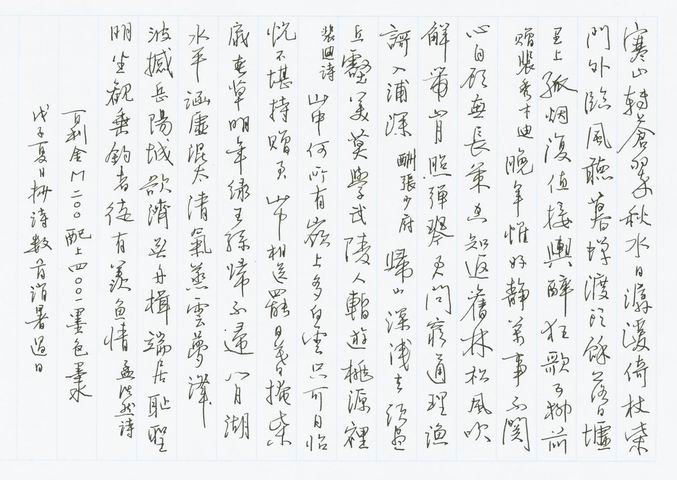 寒山轉蒼翠秋水日潺湲倚杖柴
門外臨風聽暮蟬渡頭餘落日墟
里上孤烟復值接輿醉狂歌五柳前
贈裴秀才迪 晚年惟好靜萬事不關
心自顧無長策空知返舊林松風吹
解帶山月照彈琴君問窮通理漁
謌入浦深 酬張少府 歸山深淺去須盡
丘壑美莫學武陵人暫遊桃源裡
裴迪詩 山中何所有嶺上多白雲只可自怡
悅不堪持贈君 山中相送罷日暮掩柴
扉春草明年綠王孫歸不歸 八月湖
水平 涵虛混太清氣蒸雲夢澤
波撼岳陽城欲濟無舟楫端居恥聖
明坐觀垂釣者徒有羨魚情 孟浩然詩
百利金M二〇〇配上四〇〇一墨色墨水
戊子夏日抄詩數首消暑過日